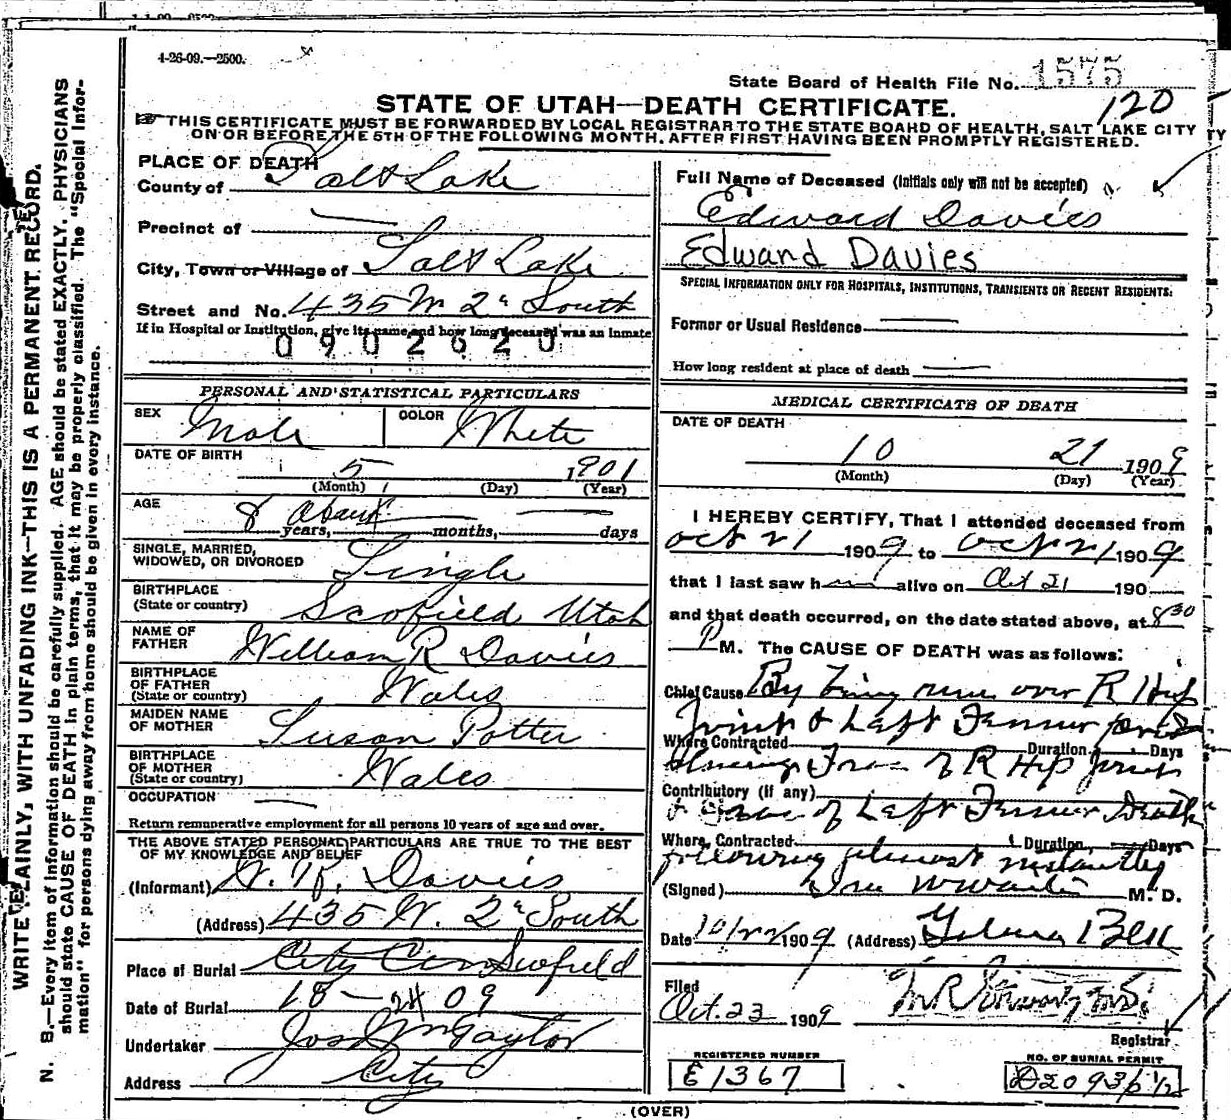 4-26-09.—2500.
State Board of Health File No. 1575
120
STATE OF UTAH—DEATH CERTIFICATE.
THIS CERTIFICATE MUST BE FORWARDED BY LOCAL REGISTRAR TO THE STATE BOARD OF HEALTH, SALT LAKE CITY
ON OR BEFORE THE 5TH OF THE FOLLOWING MONTH, AFTER FIRST HAVING BEEN PROMPTLY REGISTERED.
WRITE PLAINLY, WITH UNFADING INK—THIS IS A PERMANENT RECORD.
N. B.—Every item of information should be carefully supplied. AGE should be stated EXACTLY. PHYSICIANS
should state CAUSE OF DEATH in plain terms, that it may be properly classified. The "Special Infor-
mation" for persons dying away from home should be given in every instance.
PLACE OF DEATH
County of Salt Lake
Precinct of
City, Town or Village of Salt Lake
Street and No. 435 W 2d South
If in Hospital or Institution, give its name and how long deceased was an inmate
0902620
PERSONAL AND STATISTICAL PARTICULARS
SEX Male COLOR White
DATE OF BIRTH
5 1901
(Month) (Day) (Year)
AGE
8 about years, months, days
SINGLE, MARRIED,
WIDOWED, OR DIVORCED Single
BIRTHPLACE
(State or country) Scofield Utah
NAME OF
FATHER William R Davies
BIRTHPLACE
OF FATHER
(State or country) Wales
MAIDEN NAME
OF MOTHER Susan Potter
BIRTHPLACE
OF MOTHER
(State or country) Wales
OCCUPATION
Return remunerative employment for all persons 10 years of age and over.
THE ABOVE STATED PERSONAL PARTICULARS ARE TRUE TO THE BEST
OF MY KNOWLEDGE AND BELIEF
(Informant) Davies
(Address) 435 W. 2d South
Place of Burial City Cem Scofield
Date of Burial 09
Undertaker Jos Wm Taylor
Address City
Full Name of Deceased (Initials only will not be accepted)
Edward Davies
Edward Davies
SPECIAL INFORMATION ONLY FOR HOSPITALS, INSTITUTIONS, TRANSIENTS OR RECENT RESIDENTS:
Former or Usual Residence
How long resident at place of death
MEDICAL CERTIFICATE OF DEATH
DATE OF DEATH
10 21 1909
(Month) (Day) (Year)
I HEREBY CERTIFY, That I attended deceased from
Oct 21 1909 to Oct 21 1909
that I last saw h alive on Oct 21 190
and that death occurred, on the date stated above, at 8 30
P M. The CAUSE OF DEATH was as follows:
Chief Cause By being run over R Hip
Joint & Left Femur
Where Contracted Duration Days
Frac of R Hip Joint
Contributory (if any)
& Frac of Left Femur Death
Where Contracted Duration Days
following almost instantly
(Signed) M. D.
Date 10/22 1909 (Address)
Filed
Oct. 23 1909
Registrar
REGISTERED NUMBER
E1367
NO. OF BURIAL PERMIT
(OVER)